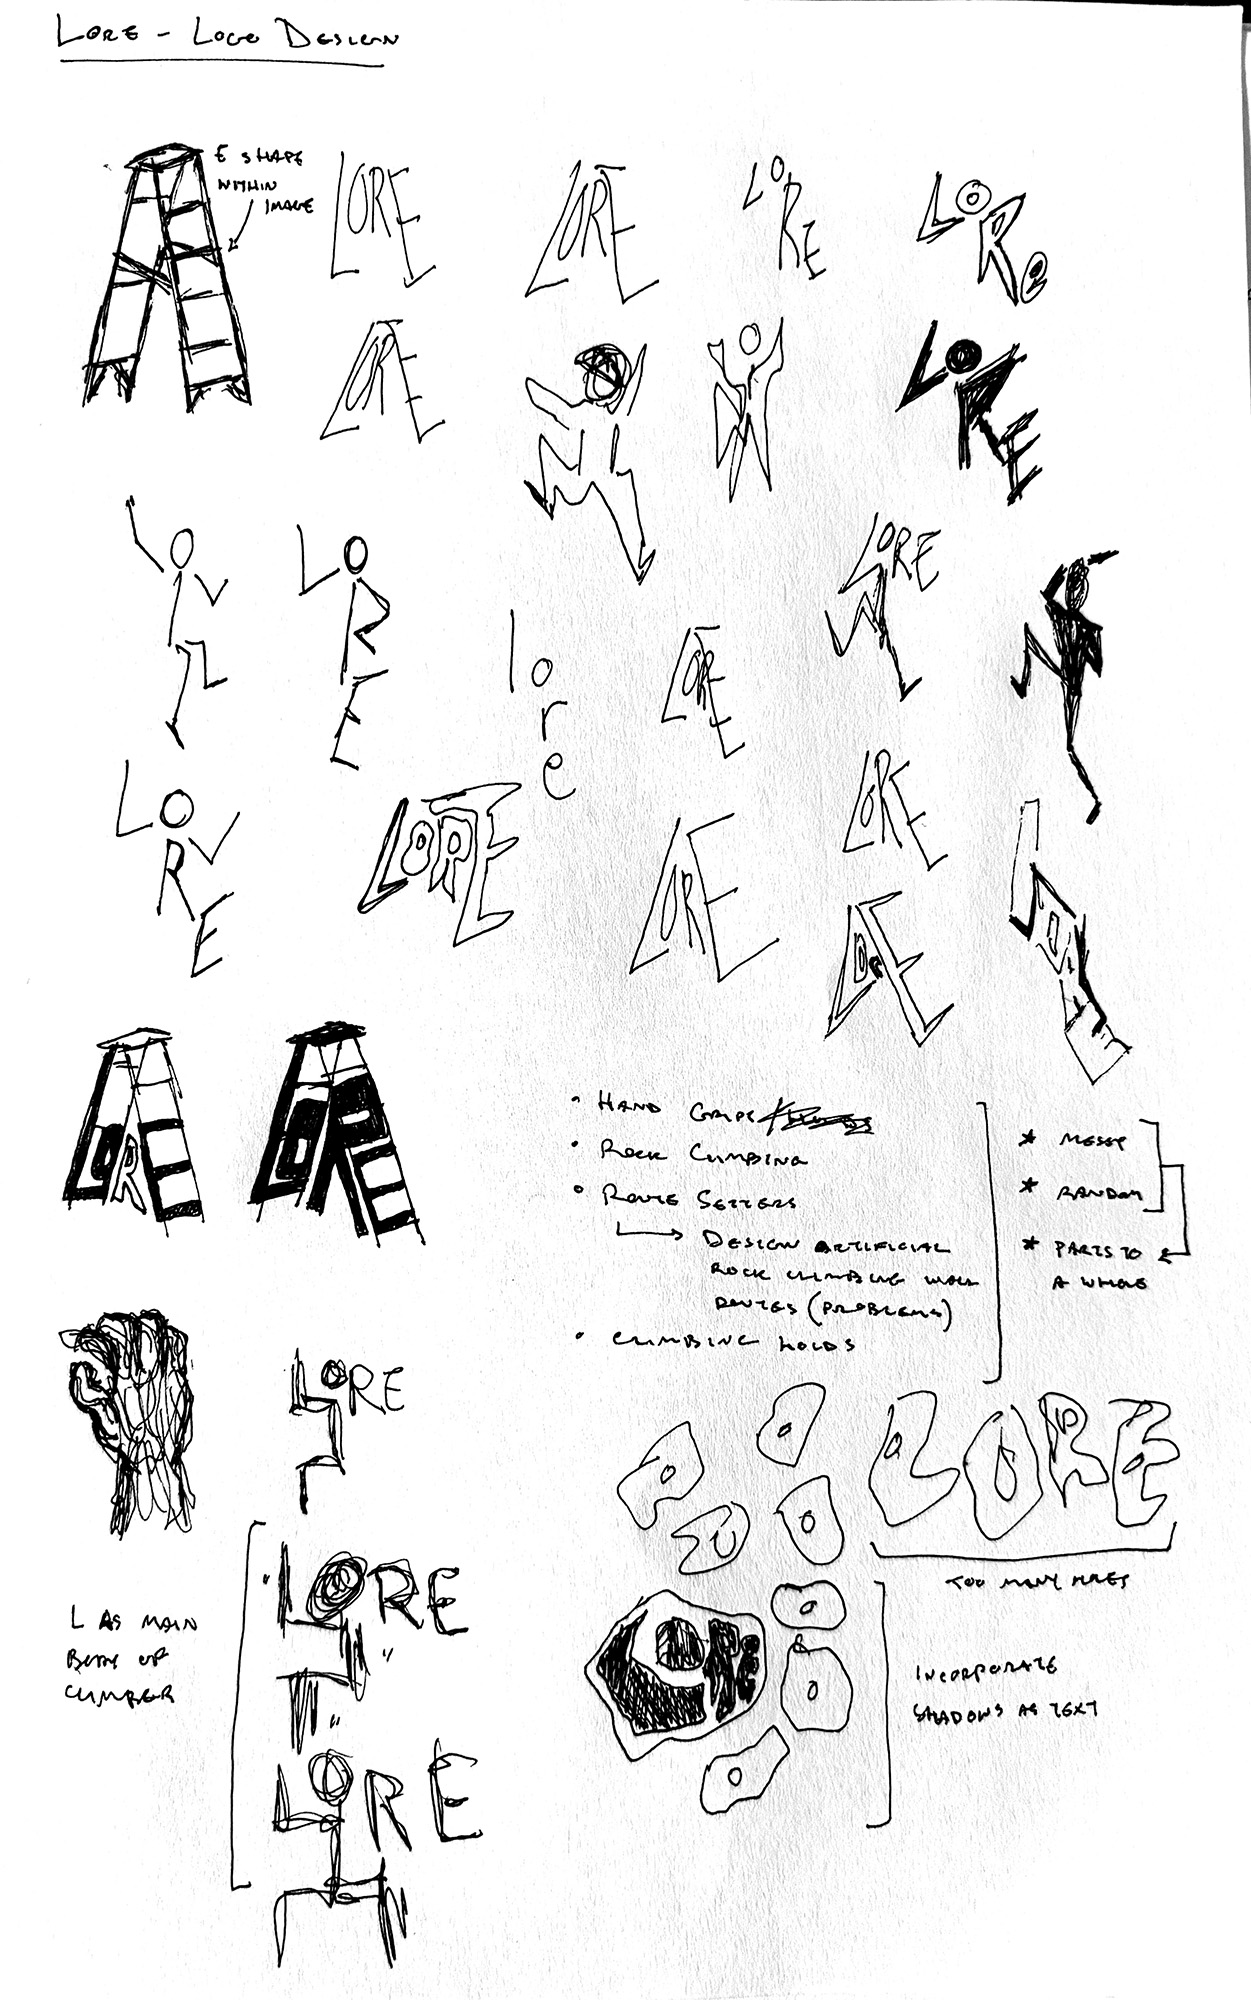 LORE - LOGO DESIGN
E SHAPE
WITHIN
IMAGE
LORE
LORE
LORE
LORe
LORE
LORE
LORE
LORE
lore
LORE
LORE
LORE
LORE
LORE
LORE
LORE
LORE
LORE
LORE
• HAND GRIPS
• ROCK CLIMBING
• ROUTE SETTERS
DESIGN ARTIFICIAL
ROCK CLIMBING WALL
ROUTES (PROBLEMS)
• CLIMBING HOLDS
* MESSY
* RANDOM
* PARTS TO
A WHOLE
LORE
LORE
TOO MANY HOLES
L AS MAIN
BODY OF
CLIMBER
"LORE
"
"
LORE
LORE
INCORPORATE
SHADOWS AS TEXT